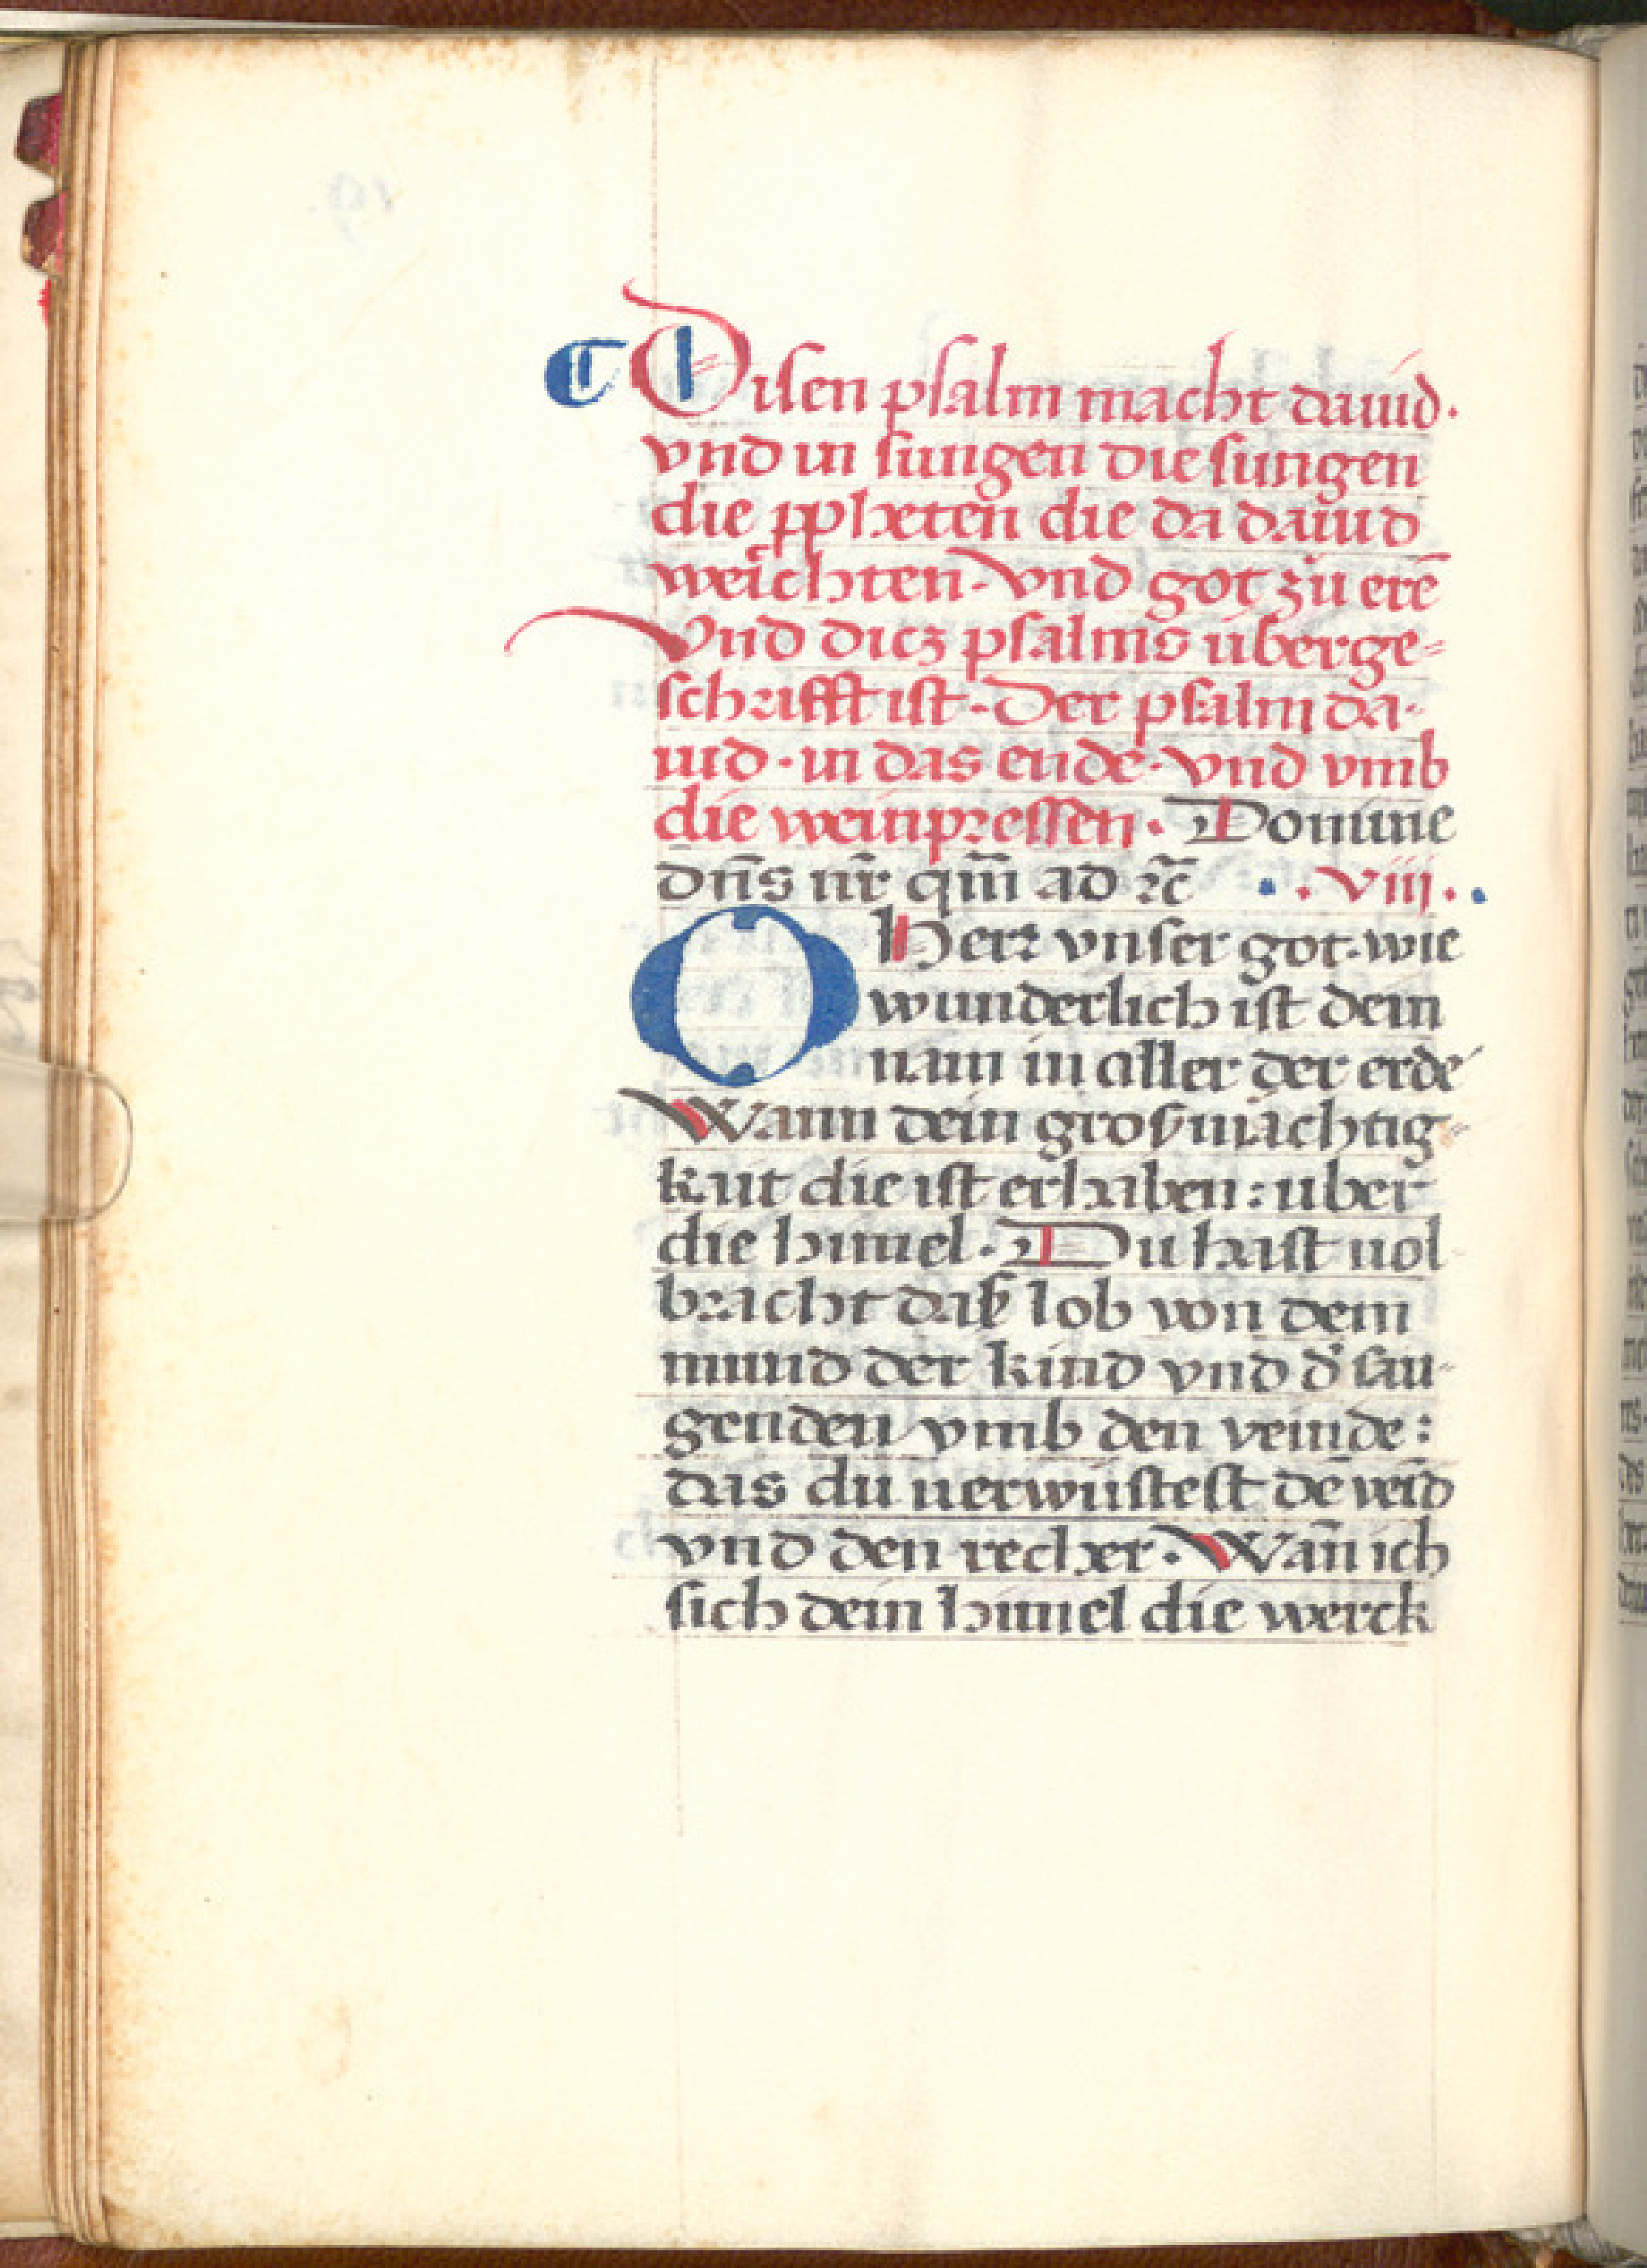 ¶ Disen psalm macht dauid·
vnd in sungen die sungen
die ꝓpheten die da dauid
weichten· vnd got zu erē
Vnd dicz psalms überge-
schrifft ist· Der psalm da-
uid· in das ende· vnd vmb
die weinpressen· Domine
dn̄s nr̄ qm̄ ad ꝛc̄ · viij ·
O Herꝛ vnser got· wie
wunderlich ist dein
nam in aller der erde
Wann dein grosmächtig-
kait die ist erhaben: uber
die himel· Du hast uol
bracht daß lob von dem
mund der kind vnd d' sau-
genden vmb den veinde:
das du uerwüstest dē veīd
vnd den recher· Wañ ich
sich dein himel die werck